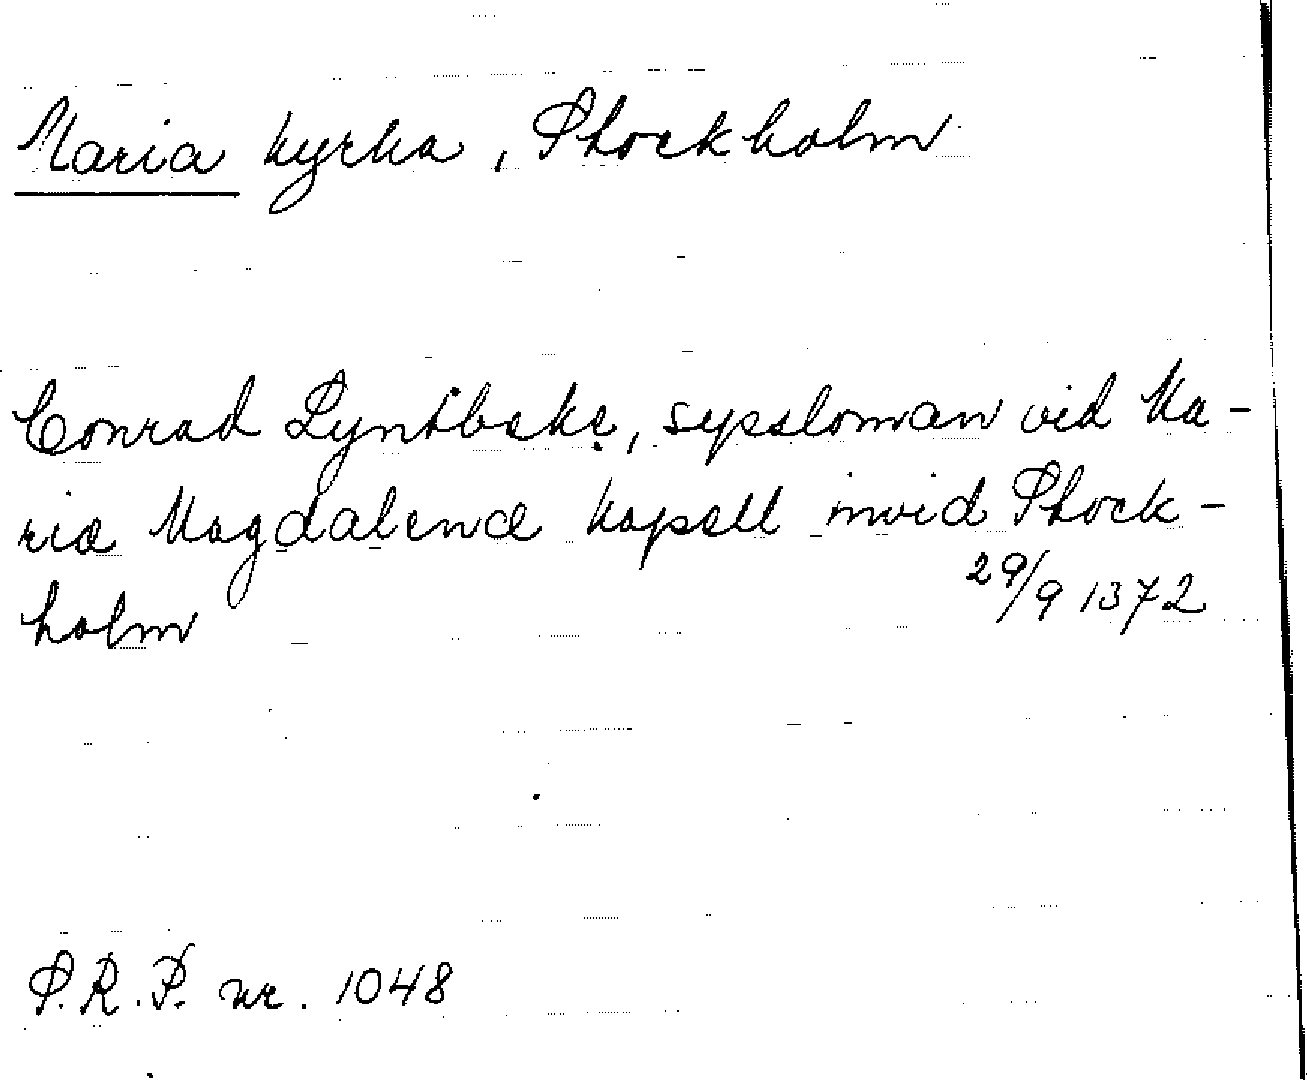 Maria kyrka, Stockholm
Conrad Lyntbeke, syssloman vid Ma-
ria Magdalena kapell invid Stock-
holm 29/9 1372
S.R.P. nr. 1048